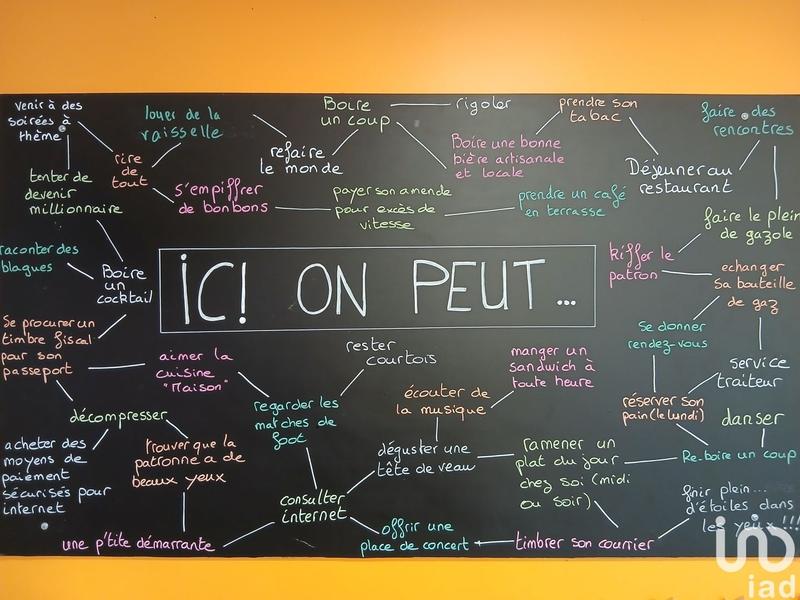 venir à des
soirées à
thème
louer de la
vaisselle
Boire
un coup
rigoler
prendre son
tabac
faire des
rencontres
rire
de
tout
refaire
le monde
Boire une bonne
bière artisanale
et locale
Déjeuner au
restaurant
tenter de
devenir
millionnaire
s'empiffrer
de bonbons
payer son amende
pour excès de
vitesse
prendre un café
en terrasse
faire le plein
de gazole
raconter des
blagues
Boire
un
cocktail
kiffer le
patron
echanger
sa bouteille
de gaz
iCi ON PEUT...
Se procurer un
timbre fiscal
pour son
passeport
aimer la
cuisine
"Maison"
rester
courtois
manger un
sandwich à
toute heure
Se donner
rendez-vous
service
traiteur
décompresser
regarder les
matches de
foot
écouter de
la musique
réserver son
pain (le lundi)
danser
acheter des
moyens de
paiement
sécurisés pour
internet
trouver que la
patronne a de
beaux yeux
déguster une
tête de veau
ramener un
plat du jour
chez soi (midi
ou soir)
Re-boire un coup
consulter
internet
finir plein...
d'étoiles dans
les yeux !!!
une p'tite démarrante
offrir une
place de concert
timbrer son courrier
iad